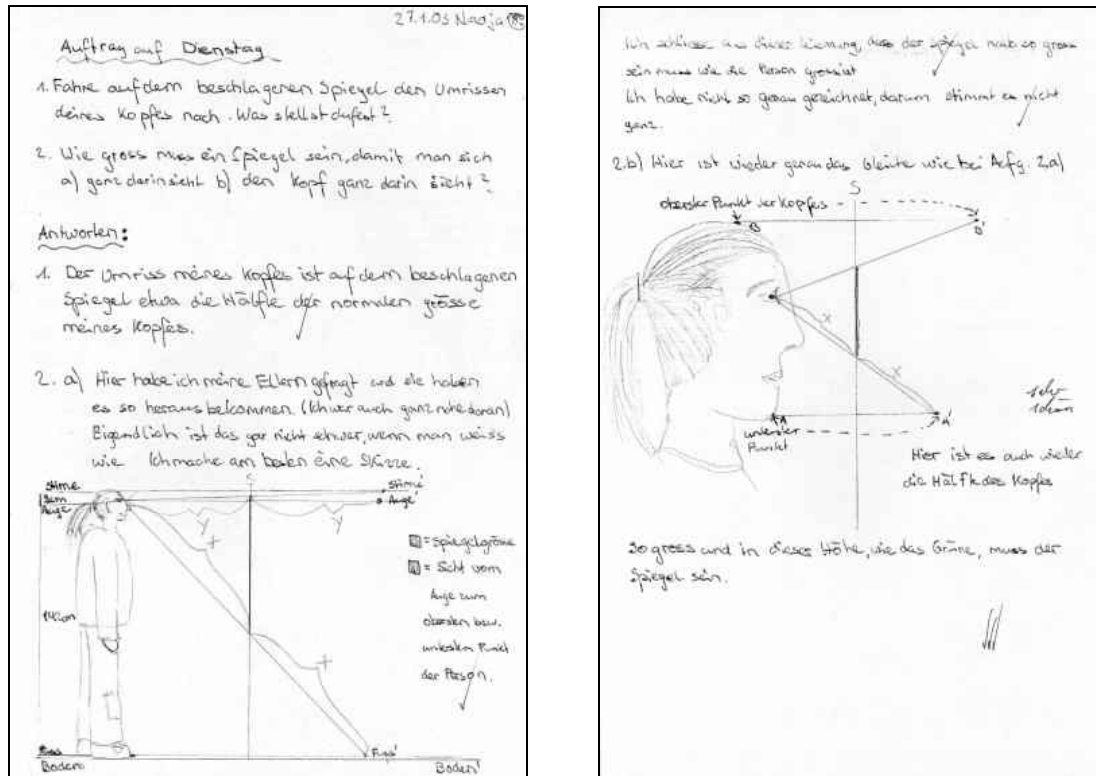 27.1.03 Nadja
Auftrag auf Dienstag
1. Fahre auf dem beschlagenen Spiegel den Umrissen
deines Kopfes nach. Was stellst du fest?
2. Wie gross muss ein Spiegel sein, damit man sich
a) ganz darin sieht b) den Kopf ganz darin sieht?
Antworten:
1. Der Umriss meines Kopfes ist auf dem beschlagenen
Spiegel etwa die Hälfte der normalen grösse
meines Kopfes.
2. a) Hier habe ich meine Eltern gefragt und sie haben
es so herausbekommen. (Ich war auch ganz nahe daran)
Eigendlich ist das gar nicht schwer, wenn man weiss
wie. Ich mache am besten eine Skizze.
Stirne
S
Stirne'
Auge
Auge'
y
y
x
x
= Spiegelgrösse
= Sicht vom
Auge zum
obersten bzw.
untersten Punkt
der Person.
Fuss'
Boden
Boden'
Ich schliesse aus dieser Zeichnung, dass der Spiegel halb so gross
sein muss wie die Person gross ist
Ich habe nicht so genau gezeichnet, darum stimmt es nicht
ganz.
2.b) Hier ist wieder genau das Gleiche wie bei Aufg. 2.a)
S
oberster Punkt der Kopfes
B
B'
x
x
A
A'
unterster
Punkt
sehr
schön
Hier ist es auch wieder
die Hälfte des Kopfes
So gross und in dieser Höhe, wie das Grüne, muss der
Spiegel sein.